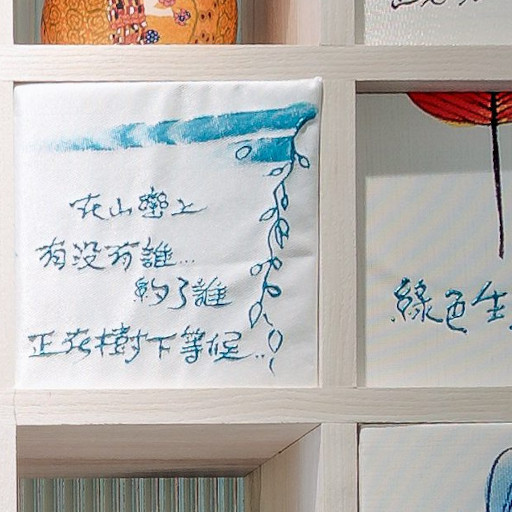 在山巒上
有没有誰...
約了誰
正在樹下等候...
綠色生